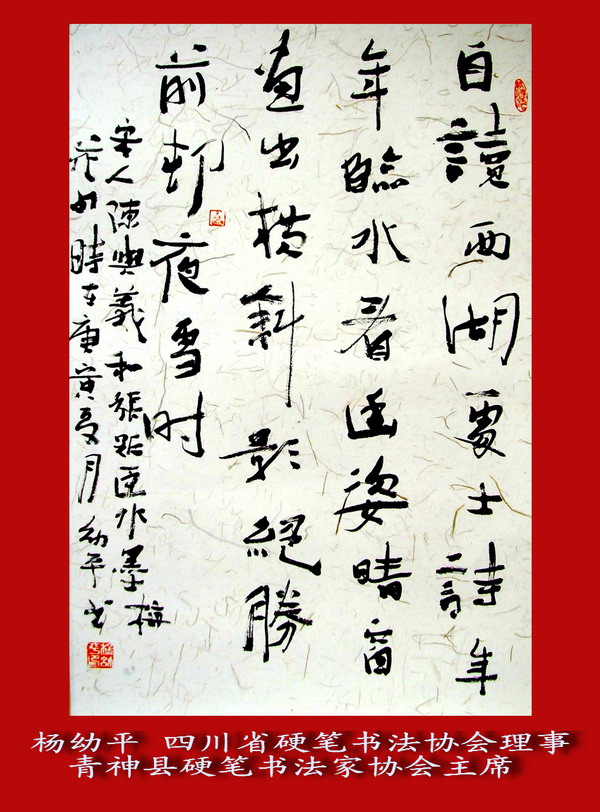 自讀西湖處士詩年
年臨水看幽姿晴窗
畫出横斜影絕勝
前邨夜雪时
宋人陳與義和張規臣水墨梅
花 時在庚寅夏月幼平书
杨幼平 四川省硬笔书法协会理事
青神县硬笔书法家协会主席